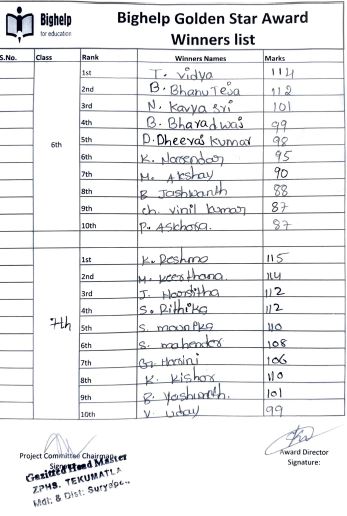 Bighelp
for education
Bighelp Golden Star Award
Winners list
S.No. Class Rank Winners Names Marks
6th
1st T. vidya 114
2nd B. Bhanu Teja 112
3rd N. Kavya sri 101
4th B. Bharadwaj 99
5th D. Dheeraj Kumar 98
6th K. Narendar 95
7th M. Akshay 90
8th B Jashwanth 88
9th ch. vinil kumar 87
10th P. 87
7th
1st K. Reshma 115
2nd M. Keerthana. 114
3rd J. 112
4th S. Rithika 112
5th S. 110
6th S. mahender 108
7th Harini 106
8th K. Kishor 110
9th B. Yashwanth. 101
10th V. Uday 99
Project Committee Chairman
Signature
Award Director
Signature:
Gazitted Head Master
ZPHS. TEKUMATLA
Mdl: & Dist: Suryapet